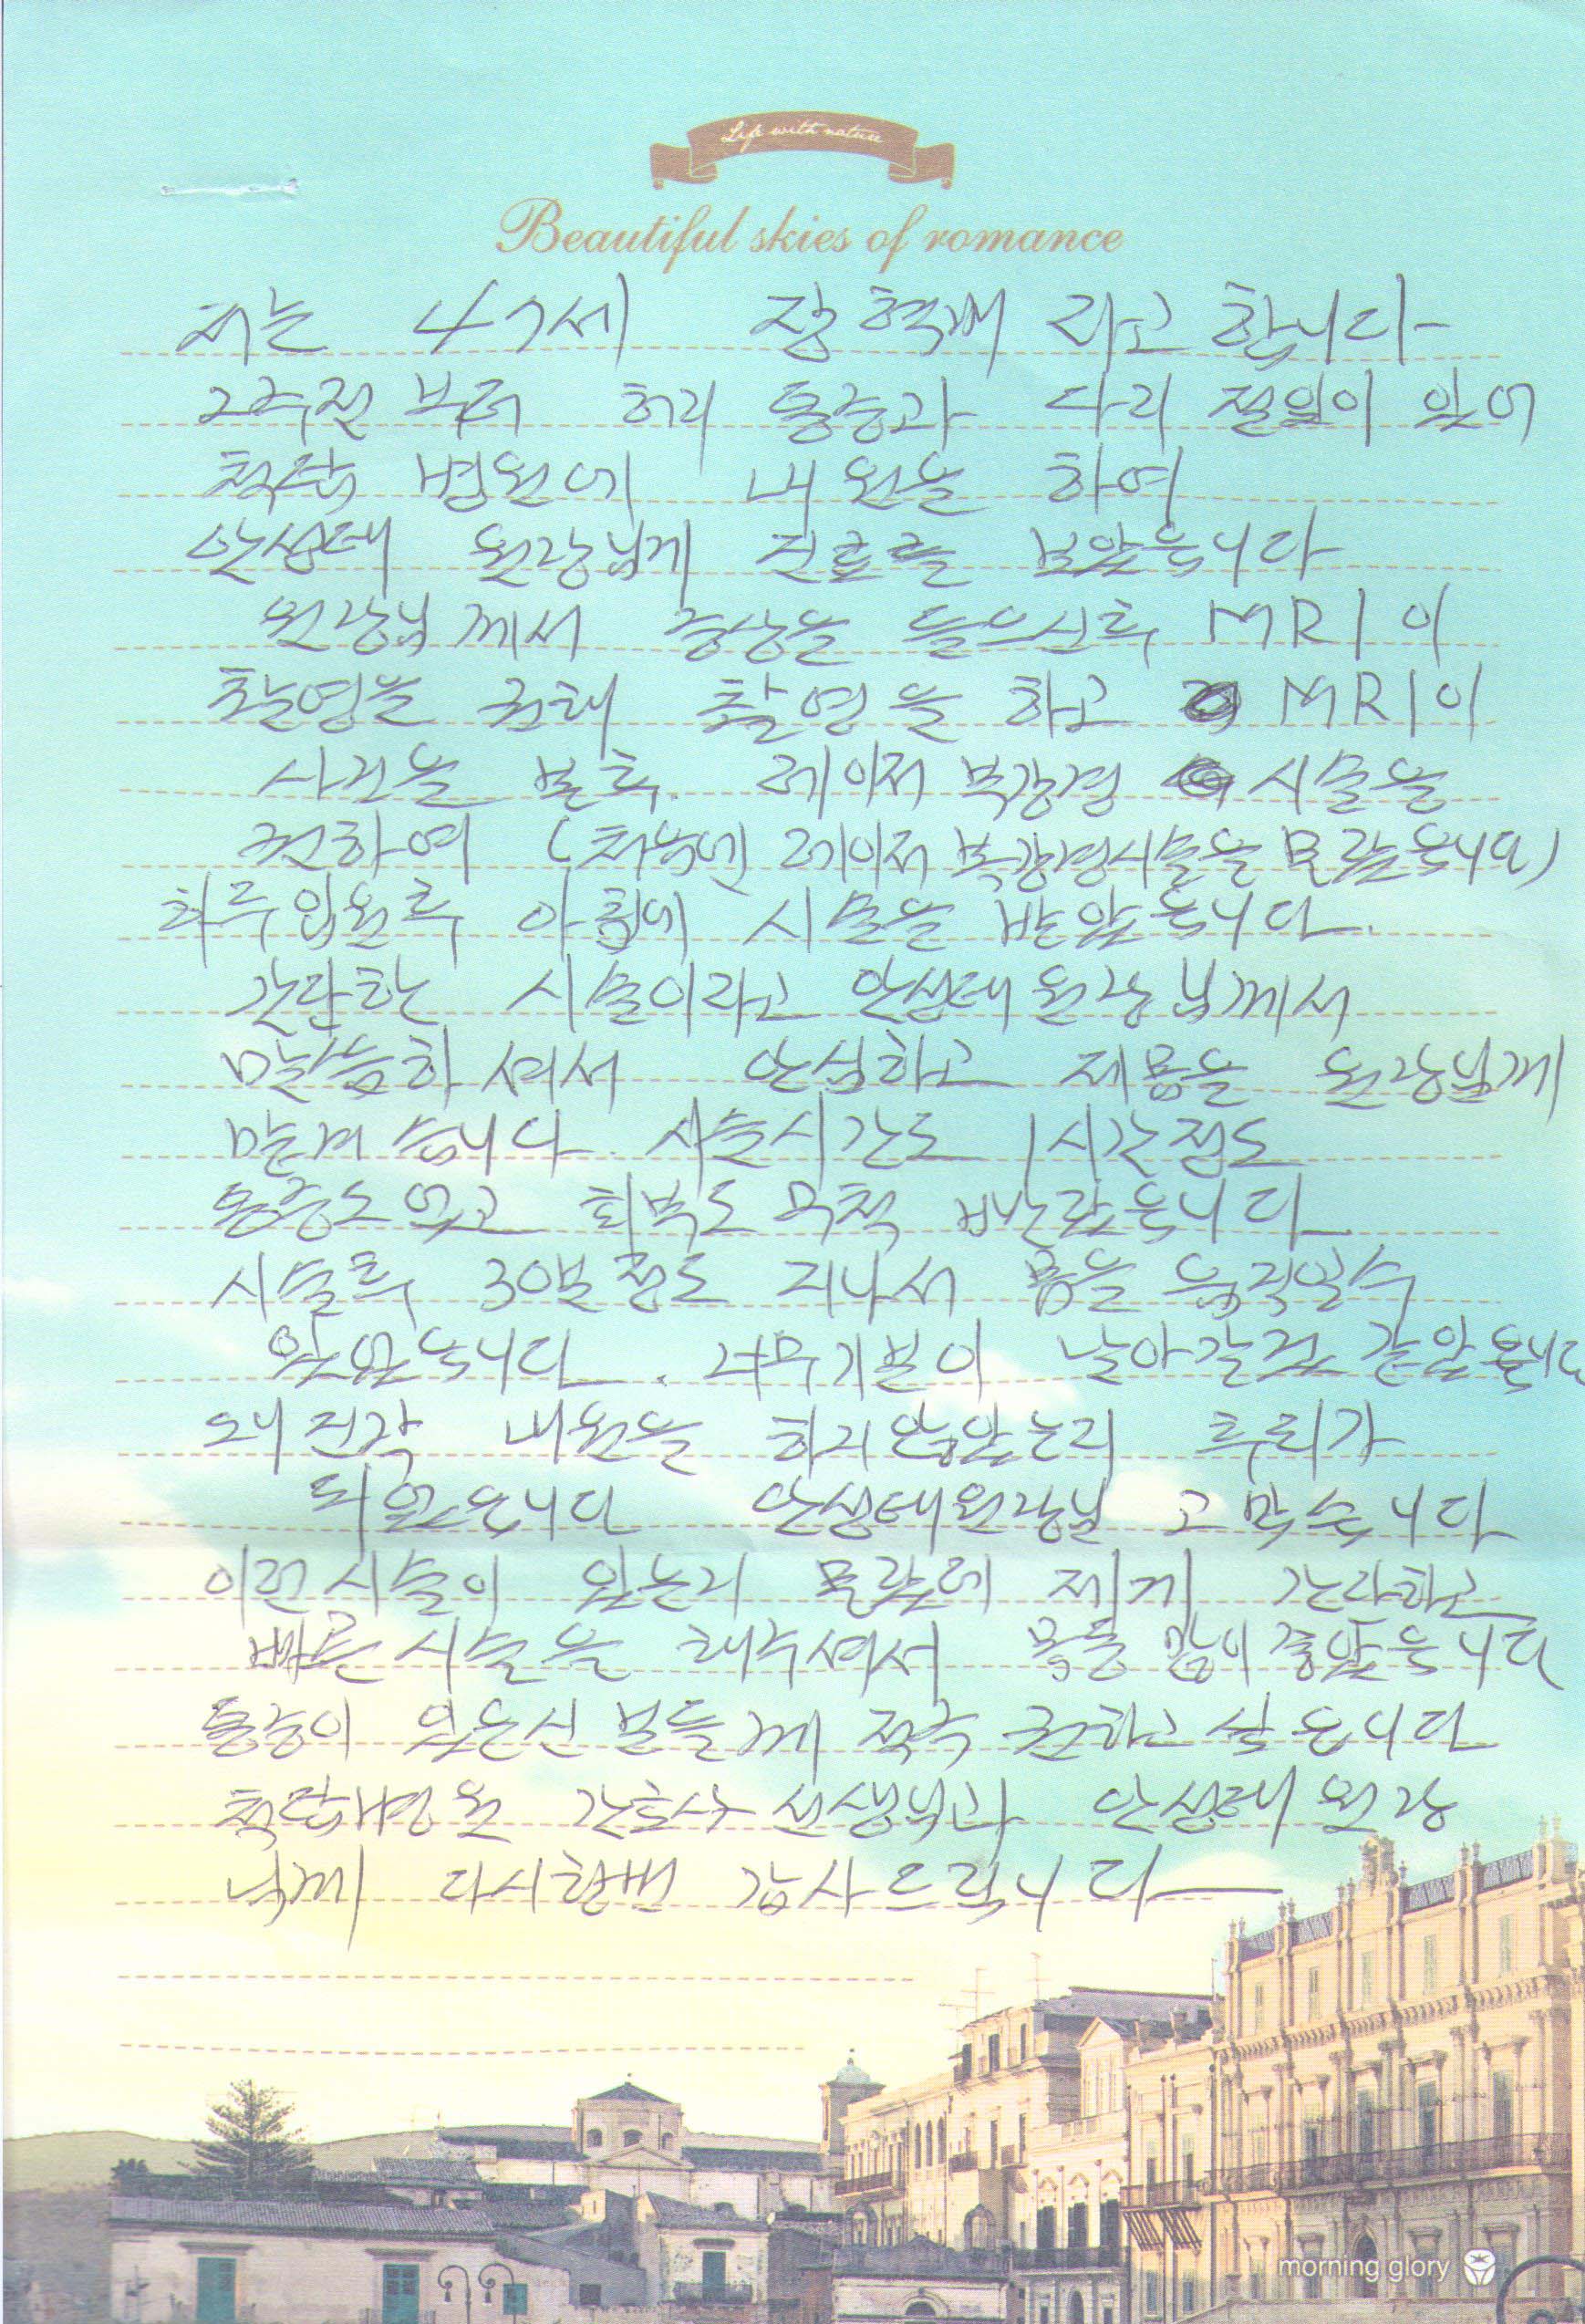 Life with nature
Beautiful skies of romance
저는 47세 장혁재 라고 합니다
2주전 부터 허리 통증과 다리 절임이 있어
척탑 병원에 내원을 하여
안성대 원장님게 진료를 보았읍니다
원장님께서 증상을 들으신후 MRI 이
촬영을 권해 촬영을 하고 MRI이
사진을 본후. 레이져 복강경 시술을
권하여 (처음엔 레이져 복강경시술을 몰랐읍니다)
하루입원후 아침에 시술을 받았읍니다.
간단한 시술이라고 안성대원장님께서
말씀하셔서 안심하고 제몸을 원장님께
맏겨습니다. 시술시간도 1시간정도
통증도 없고 회복도 무척 빨랐읍니다
시술후 30분정도 지나서 몸을 움직일수
있었읍니다. 너무기분이 날아갈것 같았읍니다
왜 진작 내원을 하지않았는지 후회가
되었읍니다 안성대원장님 고맙습니다
이런시술이 있는지 몰랐는데 제게 간단하고
빠른시술을 해주셔서 몸도 맘이 좋았읍니다
통증이 있으신 분들께 적극 권하고 싶읍니다
척탑병원 간호사 선생님과 안성대 원장
님께 다시한번 감사드립니다
morning glory